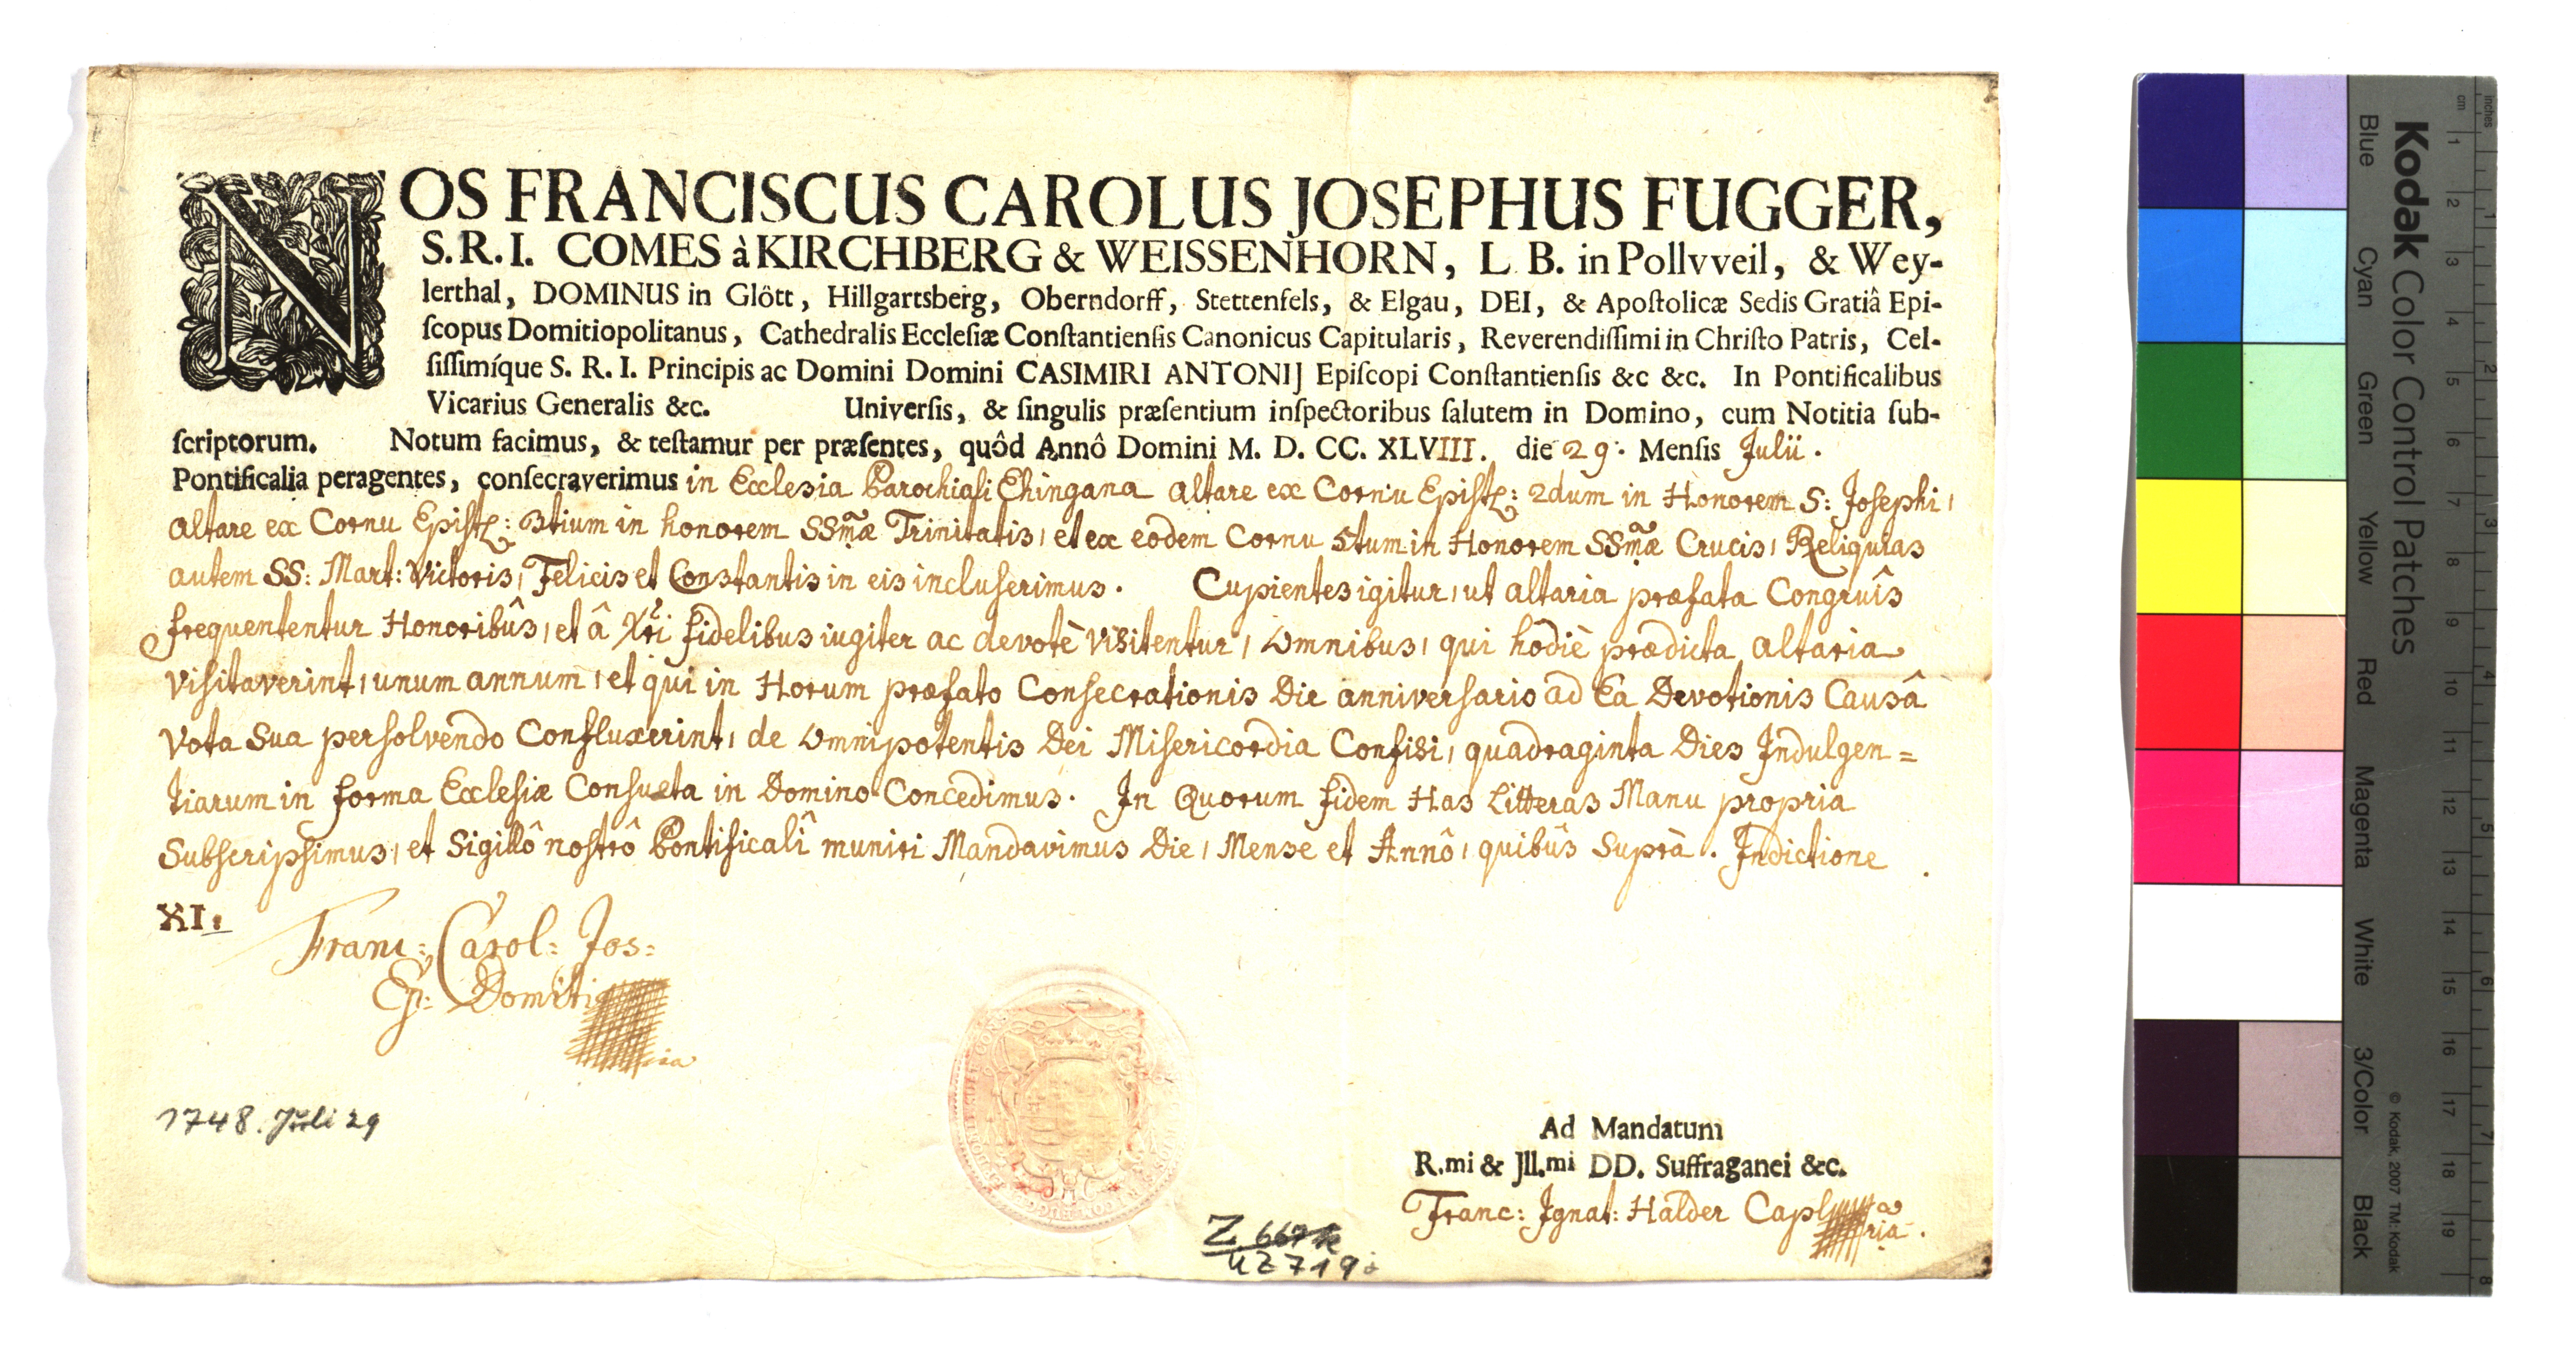 NOS FRANCISCUS CAROLUS JOSEPHUS FUGGER,
S. R. I. COMES à KIRCHBERG & WEISSENHORN, L. B. in Pollvveil, & Wey-
lerthal, DOMINUS in Glôtt, Hillgartsberg, Oberndorff, Stettenfels, & Elgau, DEI, & Apoſtolicæ Sedis Gratiâ Epi-
ſcopus Domitiopolitanus, Cathedralis Eccleſiæ Conſtantienſis Canonicus Capitularis, Reverendiſſimi in Chriſto Patris, Cel-
ſiſſimíque S. R. I. Principis ac Domini Domini CASIMIRI ANTONIJ Epiſcopi Conſtantienſis &c &c. In Pontificalibus
Vicarius Generalis &c. Univerſis, & ſingulis præſentium inſpectoribus ſalutem in Domino, cum Notitia ſub-
ſcriptorum. Notum facimus, & teſtamur per præſentes, quôd Annô Domini M. D. CC. XLVIII. die 29. Menſis Julii.
Pontificalia peragentes, conſecraverimus in Ecclesia Parochiali Ehingana altare ex Cornu Epistl: 2dum in Honorem S: Josephi,
altare ex Cornu Epistl: 3tium in honorem SSmæ Trinitatis, et ex eodem Cornu 5tum in Honorem SSmæ Crucis, Reliquias
autem SS: Mart: Victoris, Felicis et Constantis in eis incluserimus. Cupientes igitur, ut altaria præfata Congruîs
frequententur Honoribûs, et â Xti fidelibus iugiter ac devotè visitentur, omnibus, qui hodiè prædicta altaria
visitaverint, unum annum, et qui in Horum præfato Consecrationis Die anniversario ad Ea Devotionis Causâ
vota sua persolvendo Confluxerint, de omnipotentis Dei Misericordia Confisi, quadraginta Dies Indulgen=
tiarum in forma Ecclesiæ Consueta in Domino Concedimus. In Quorum fidem Has Litteras Manu propria
Subscripsimus, et Sigillô nostrô Pontificalî muniri Mandavimus Die, Mense et Annô, quibûs Suprà. Indictione
XI:
Franc: Carol: Jos:
Ep: Domiti
1748. Juli 29
Ad Mandatum
R.mi & Jll.mi DD. Suffraganei &c.
Franc: Ignat: Halder Capl
Z
UZ 719
Kodak Color Control Patches
Blue Cyan Green Yellow Red Magenta White 3/Color Black
© Kodak, 2007 TM: Kodak
inches 1 2 3 4 5 6 7 8
cm 1 2 3 4 5 6 7 8 9 10 11 12 13 14 15 16 17 18 19